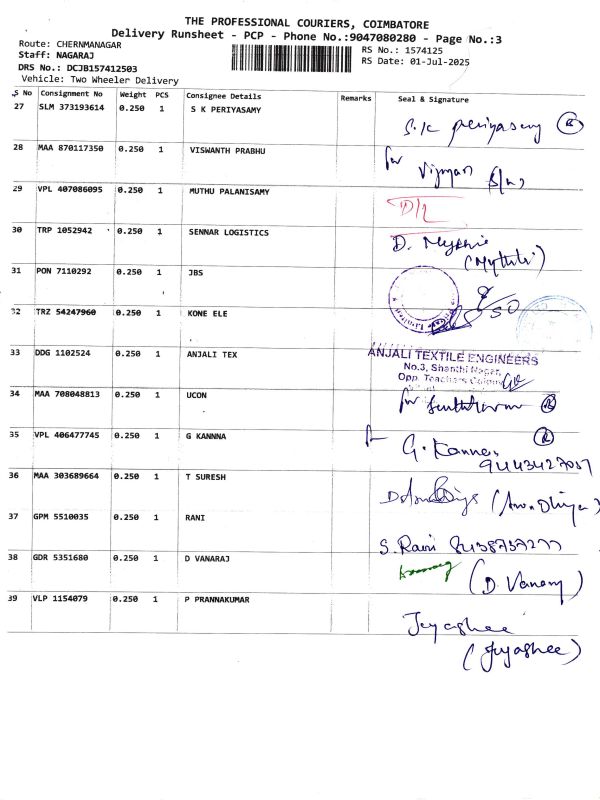 THE PROFESSIONAL COURIERS, COIMBATORE
Delivery Runsheet - PCP - Phone No.:9047080280 - Page No.:3
Route: CHERNMANAGAR
Staff: NAGARAJ
DRS No.: DCJB157412503
Vehicle: Two Wheeler Delivery
RS No.: 1574125
RS Date: 01-Jul-2025
S No Consignment No Weight PCS Consignee Details Remarks Seal & Signature
27 SLM 373193614 0.250 1 S K PERIYASAMY S.K periyasamy
28 MAA 870117350 0.250 1 VISWANTH PRABHU for
29 VPL 407086095 0.250 1 MUTHU PALANISAMY D/L
30 TRP 1052942 0.250 1 SENNAR LOGISTICS D.
(Mythili)
31 PON 7110292 0.250 1 JBS
32 TRZ 54247960 0.250 1 KONE ELE
33 DDG 1102524 0.250 1 ANJALI TEX ANJALI TEXTILE ENGINEERS
No.3, Shanthi Nagar,
Opp. Teachers Colony
34 MAA 708048813 0.250 1 UCON for
35 VPL 406477745 0.250 1 G KANNNA G. Kannan
9443427057
36 MAA 303689664 0.250 1 T SURESH
37 GPM 5510035 0.250 1 RANI S. Rani
38 GDR 5351680 0.250 1 D VANARAJ
(D. Vanaraj)
39 VLP 1154079 0.250 1 P PRANNAKUMAR Jeyashee
(Jeyashee)